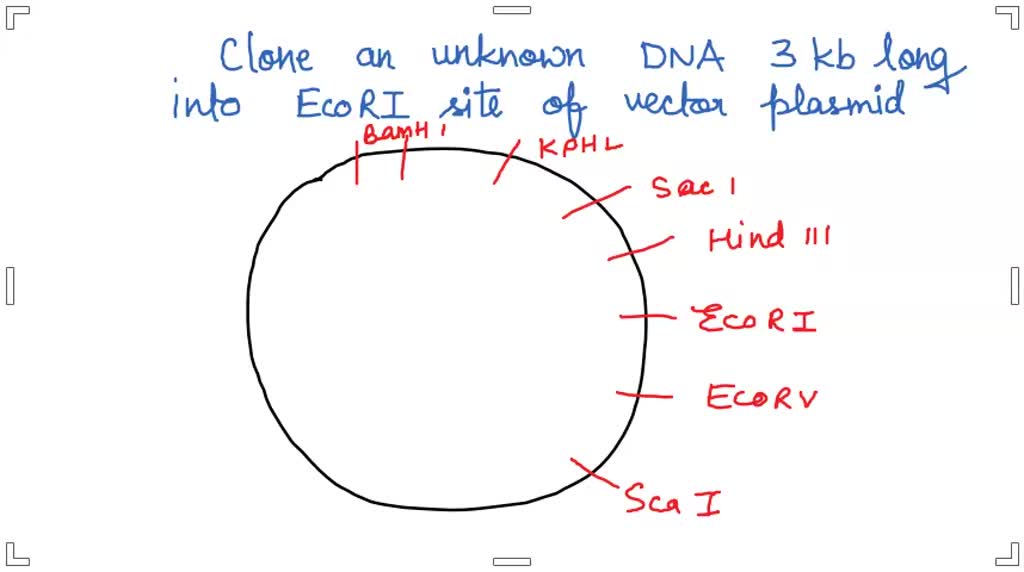 Clone an unknown DNA 3 kb long
into EcoRI site of vector plasmid
BamH I
KPHL
Sac I
Hind III
EcoRI
EcoRV
Sca I